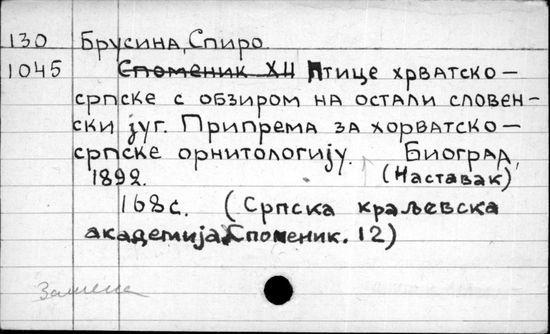 130 Брусина, Спиро
1045 Споменик XII Птице хрватско-
српске с обзиром на остали словен-
ски југ. Припрема за хорватско-
српске орнитологију. Биоград,
1892. (Наставак)
168с. (Српска краљевска
академија. Споменик. 12)
Замена